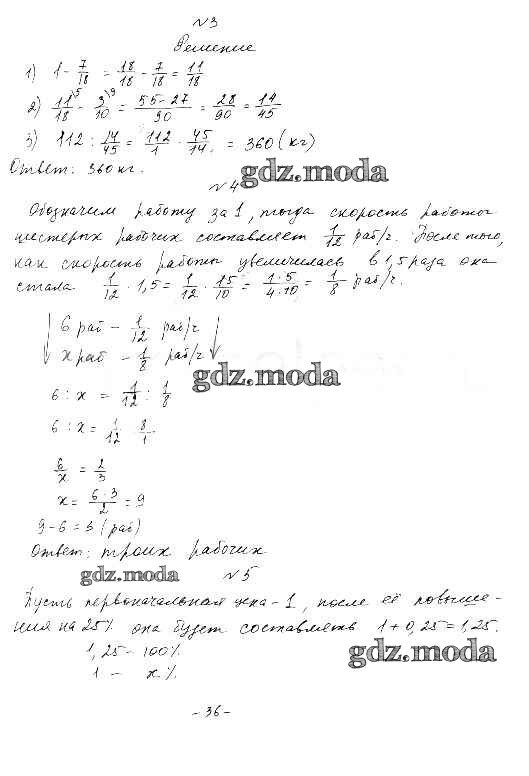 №3
Решение
1) 1 - 7/18 = 18/18 - 7/18 = 11/18
2) 11/18 \5 - 3/10 \9 = 55-27/90 = 28/90 = 14/45
3) 112 : 14/45 = 112/1 · 45/14 = 360 (кг)
Ответ: 360 кг.
gdz.moda
№4
Обозначим работу за 1, тогда скорость работы
шестерых рабочих составляет 1/12 раб/г. После того,
как скорость работы увеличилась в 1,5 раза она
стала 1/12 · 1,5 = 1/12 · 15/10 = 1·5/4·10 = 1/8 раб/г.
↓ 6 раб - 1/12 раб/г ↓
х раб - 1/8 раб/г
gdz.moda
6 : х = 1/12 : 1/8
6 : х = 1/12 · 8/1
6/х = 2/3
х = 6·3/2 = 9
9 - 6 = 3 (раб)
Ответ: троих рабочих
gdz.moda
№5
Пусть первоначальная цена - 1, после её повыше-
ния на 25% она будет составлять 1 + 0,25 = 1,25.
1,25 - 100%
gdz.moda
1 - х%
- 36 -